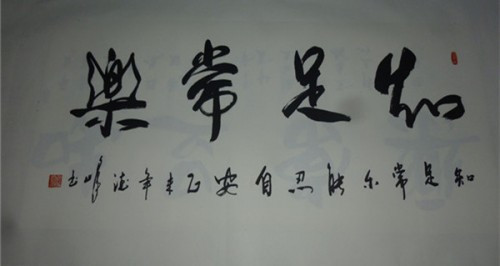 知足常樂
知足常乐能忍自安未年书